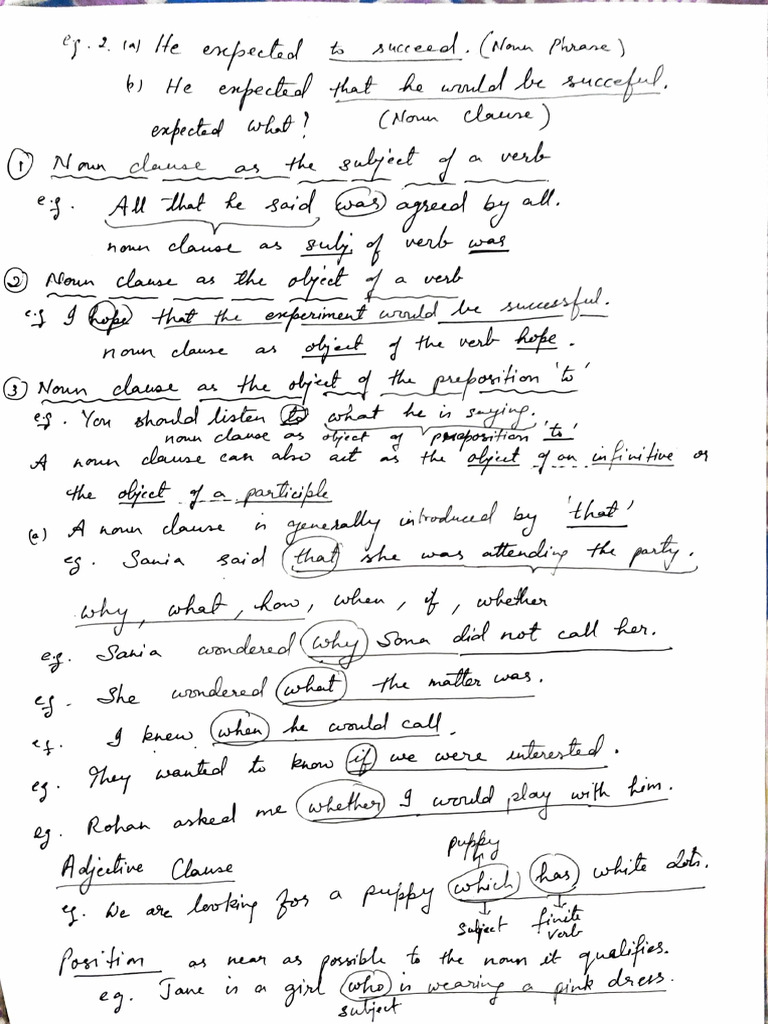 eg. 2. (a) He expected to succeed. (Noun Phrase)
b) He expected that he would be succeful.
expected what? (Noun Clause)
① Noun clause as the subject of a verb
e.g. All that he said was agreed by all.
noun clause as subj. of verb was
② Noun clause as the object of a verb
e.g I hope that the experiment would be successful.
noun clause as object of the verb hope.
③ Noun clause as the object of the preposition 'to'
e.g. You should listen to what he is saying.
noun clause as object of preposition 'to'
A noun clause can also act as the object of an infinitive or
the object of a participle
(a) A noun clause is generally introduced by 'that'
eg. Sania said that she was attending the party.
why, what, how, when, if, whether
e.g. Sania wondered why Sona did not call her.
eg. She wondered what the matter was.
eg. I knew when he would call.
eg. They wanted to know if we were interested.
eg. Rohan asked me whether I would play with him.
puppy
Adjective Clause
eg. We are looking for a puppy which has white dots.
subject finite verb
Position as near as possible to the noun it qualifies.
eg. Jane is a girl who is wearing a pink dress.
subject